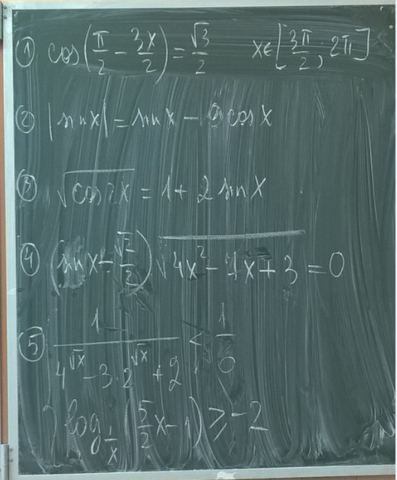 ① cos(π/2 - 3x/2) = √3/2 x∈[3π/2; 2π]
② |sinx| = sinx - cosx
③ √cos2x = 1 + 2 sinx
④ (sinx - √2/2)√4x² - 7x + 3 = 0
⑤ 1/4^√x - 3·2^√x + 2 ≤ 1/6
log_1/x (5/2 x - 1) ≥ -2